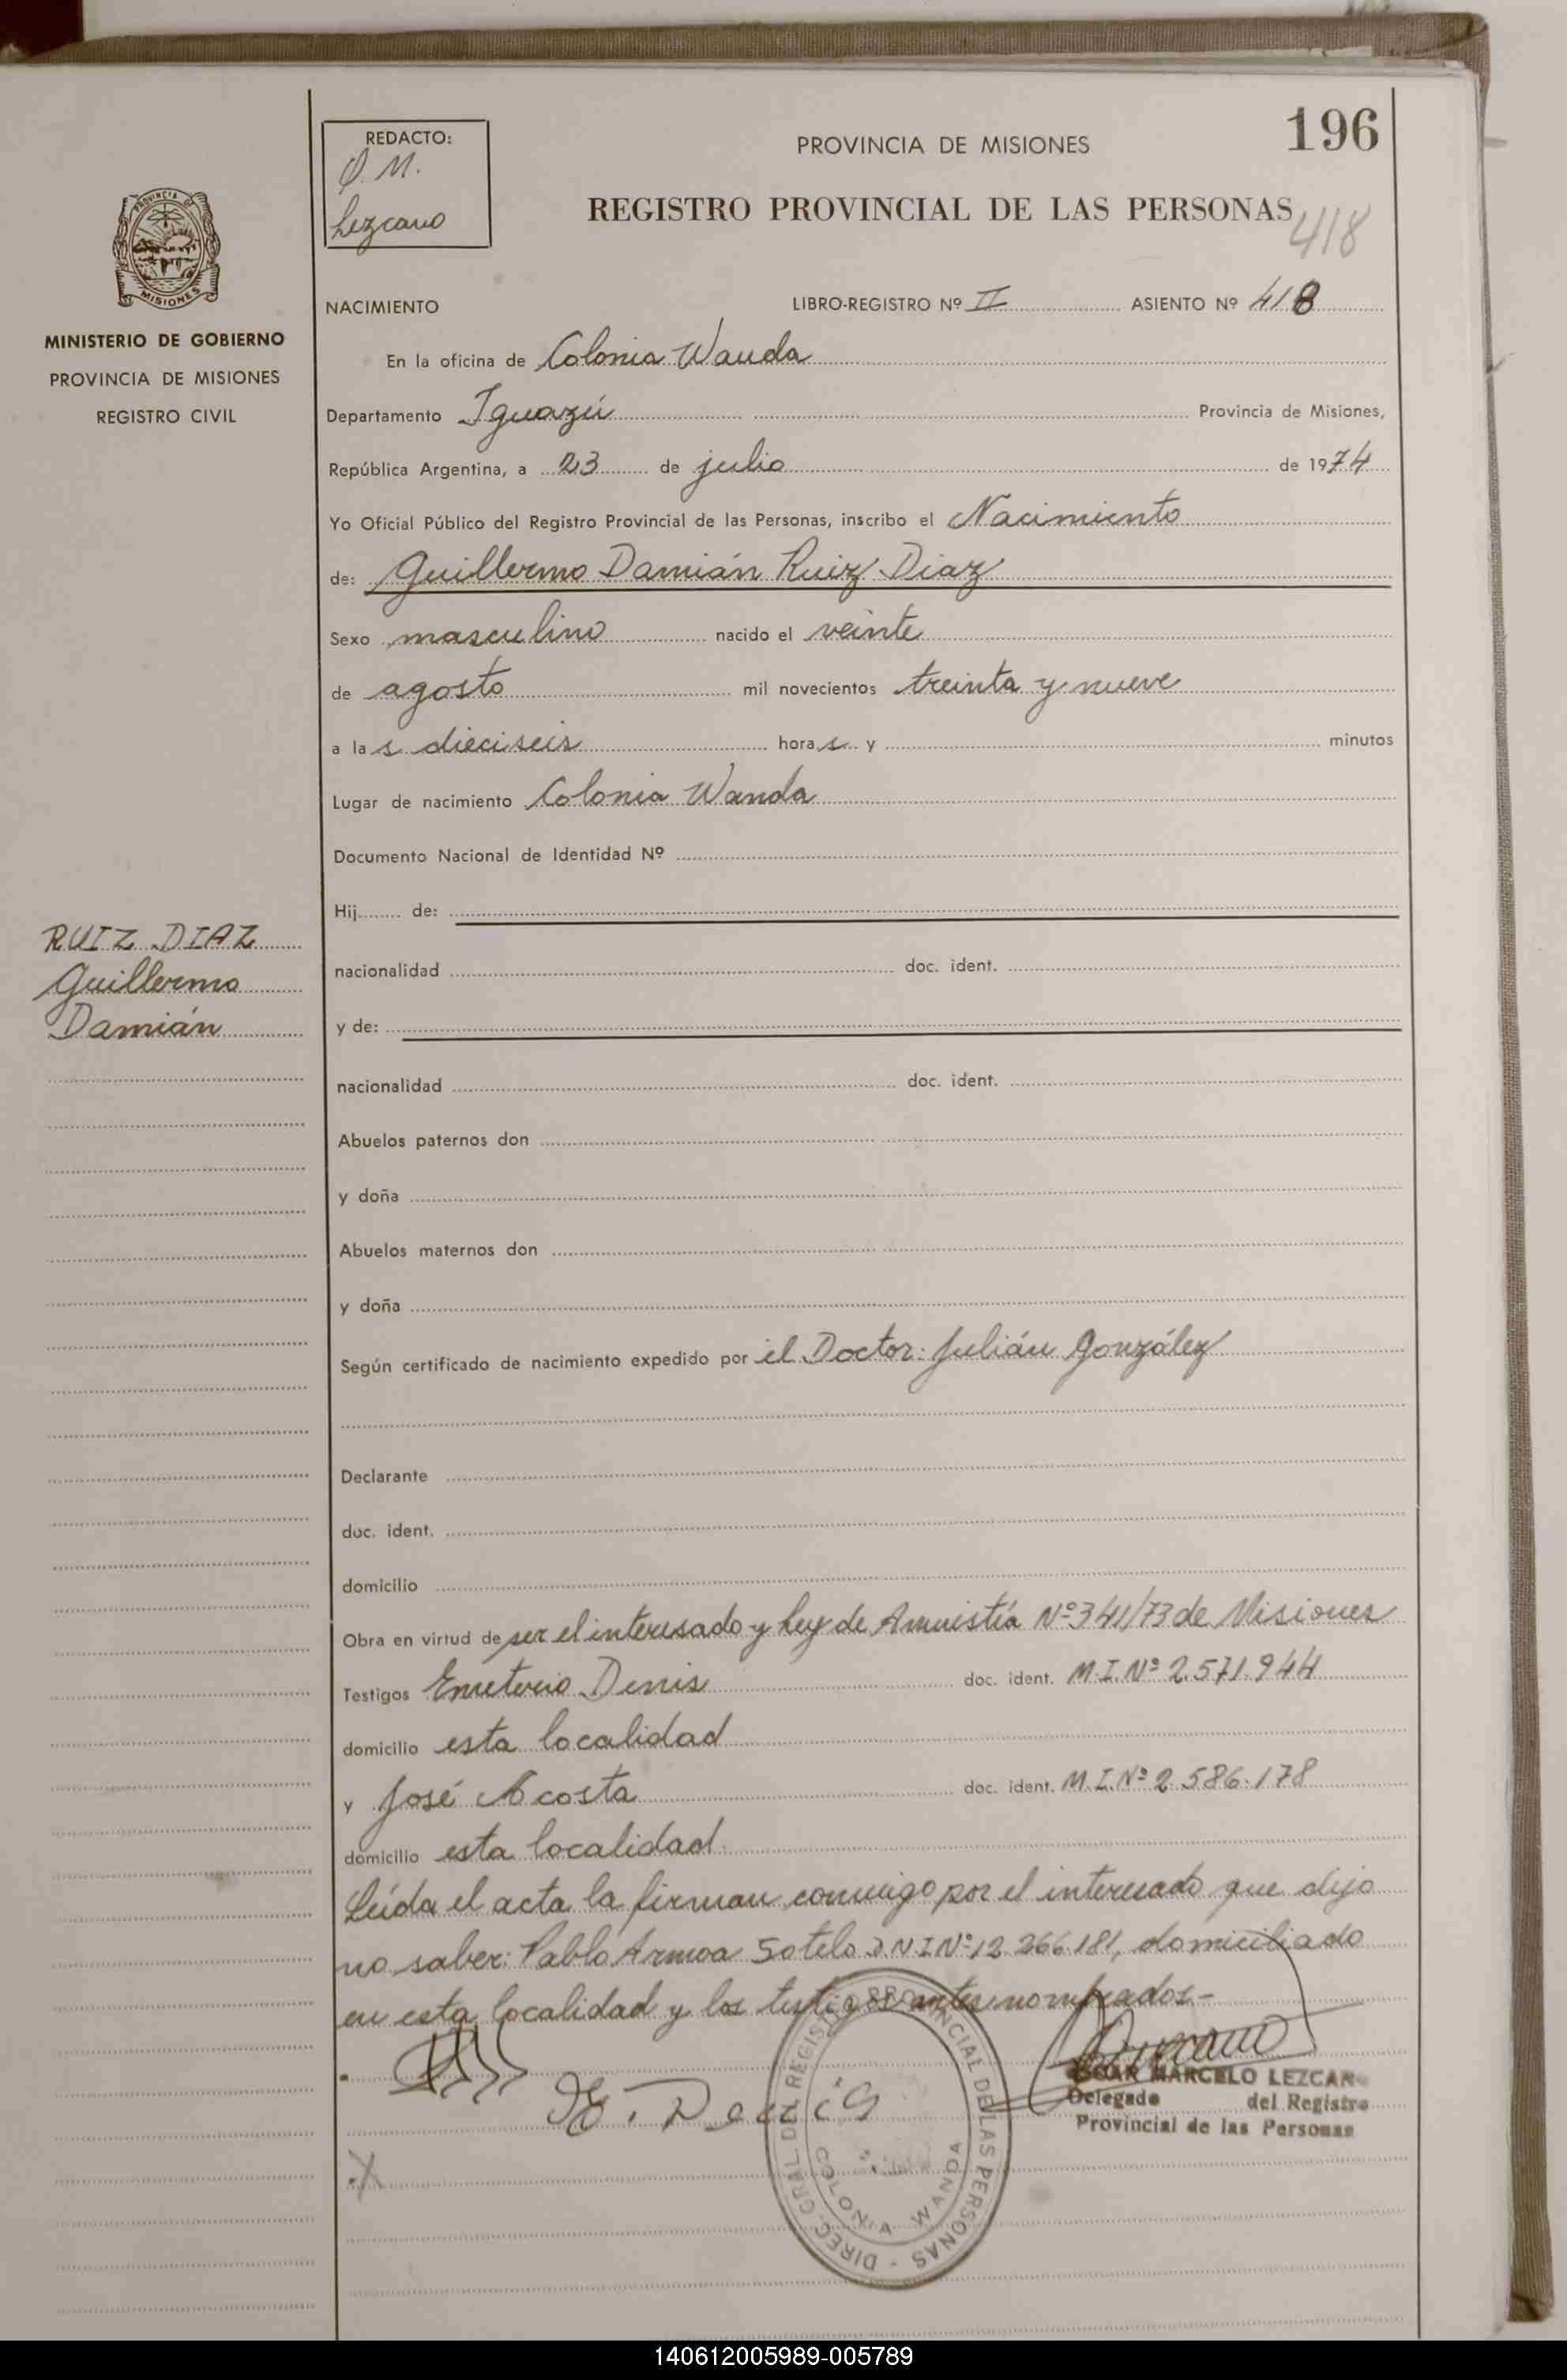 196
REDACTO:
O. M.
Lezcano
PROVINCIA DE MISIONES
REGISTRO PROVINCIAL DE LAS PERSONAS
418
PROVINCIA DE
MISIONES
MINISTERIO DE GOBIERNO
PROVINCIA DE MISIONES
REGISTRO CIVIL
RUIZ DIAZ
Guillermo
Damián
NACIMIENTO LIBRO-REGISTRO Nº II ASIENTO Nº 418
En la oficina de Colonia Wanda
Departamento Iguazú Provincia de Misiones,
República Argentina, a 23 de julio de 1974
Yo Oficial Público del Registro Provincial de las Personas, inscribo el Nacimiento
de: Guillermo Damián Ruiz Diaz
Sexo masculino nacido el veinte
de agosto mil novecientos treinta y nueve
a las dieciseis horas y minutos
Lugar de nacimiento Colonia Wanda
Documento Nacional de Identidad Nº
Hij de:
nacionalidad doc. ident.
y de:
nacionalidad doc. ident.
Abuelos paternos don
y doña
Abuelos maternos don
y doña
Según certificado de nacimiento expedido por el Doctor: Julián González
Declarante
doc. ident.
domicilio
Obra en virtud de ser el interesado y Ley de Amnistía Nº 341/73 de Misiones
Testigos Emeterio Denis doc. ident. M.I. Nº 2.571.944
domicilio esta localidad
y José Acosta doc. ident. M.I. Nº 2.586.178
domicilio esta localidad.
Leída el acta la firman conmigo por el interesado que dijo
no saber: Pablo Armoa Sotelo D.N.I Nº 12.366.181, domiciliado
en esta localidad y los testigos antes nombrados.-
E. Denis
MARCELO LEZCAN
Delegado del Registro
Provincial de las Personas
DIREC. GRAL. DEL REGISTRO PROVINCIAL DE LAS PERSONAS
COLONIA WANDA
140612005989-005789